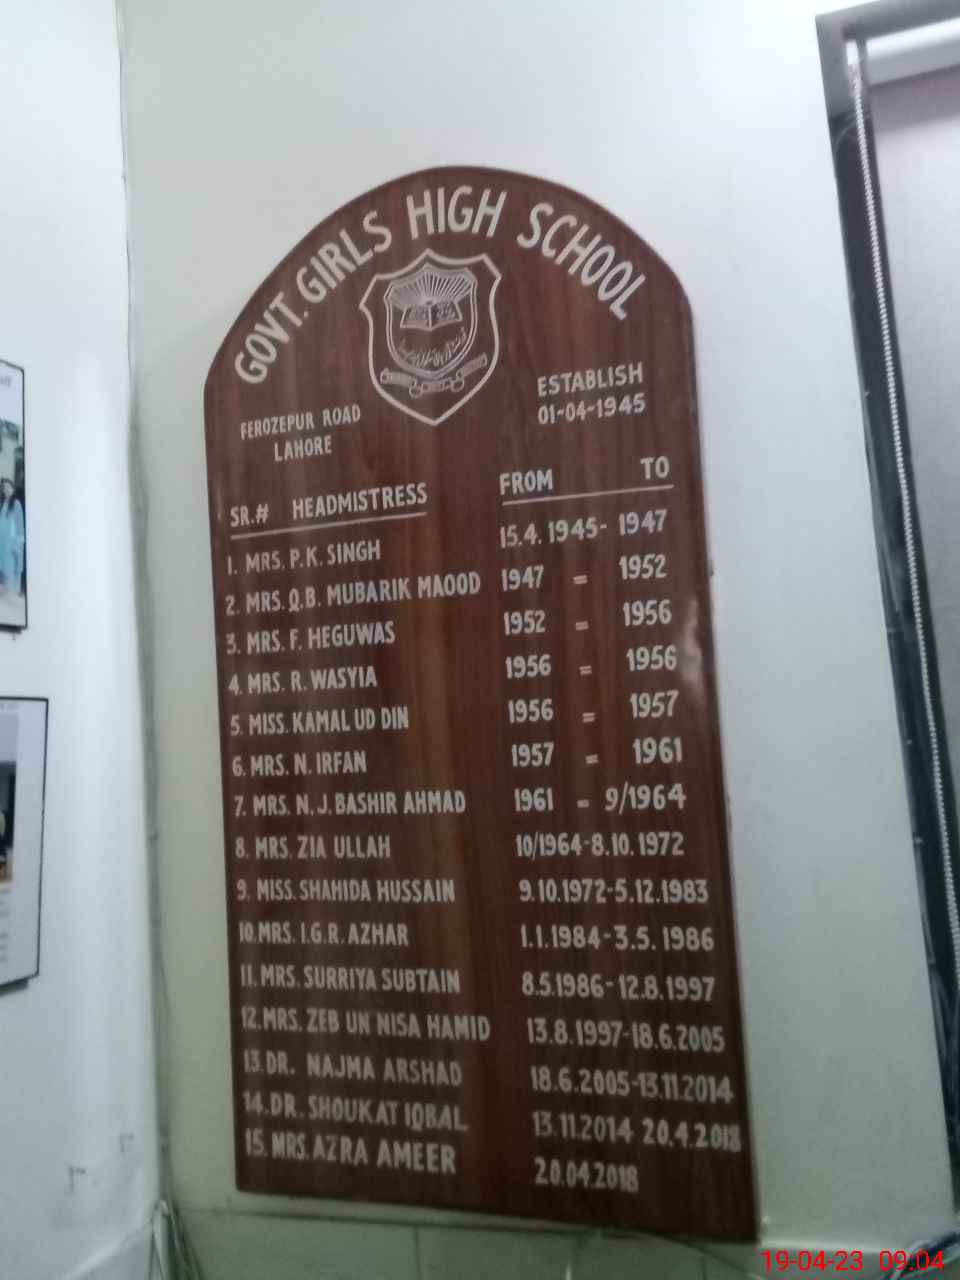 GOVT. GIRLS HIGH SCHOOL
FEROZEPUR ROAD
LAHORE
ESTABLISH
01-04-1945
SR.# HEADMISTRESS FROM TO
1. MRS. P.K. SINGH 15.4.1945- 1947
2. MRS. Q.B. MUBARIK MAOOD 1947 = 1952
3. MRS. F. HEGUWAS 1952 = 1956
4. MRS. R. WASYIA 1956 = 1956
5. MISS. KAMAL UD DIN 1956 = 1957
6. MRS. N. IRFAN 1957 = 1961
7. MRS. N.J. BASHIR AHMAD 1961 = 9/1964
8. MRS. ZIA ULLAH 10/1964-8.10.1972
9. MISS. SHAHIDA HUSSAIN 9.10.1972-5.12.1983
10. MRS. I.G.R. AZHAR 1.1.1984-3.5.1986
11. MRS. SURRIYA SUBTAIN 8.5.1986-12.8.1997
12. MRS. ZEB UN NISA HAMID 13.8.1997-18.6.2005
13. DR. NAJMA ARSHAD 18.6.2005-13.11.2014
14. DR. SHOUKAT IQBAL 13.11.2014 20.4.2018
15. MRS. AZRA AMEER 20.04.2018
19-04-23 09:04